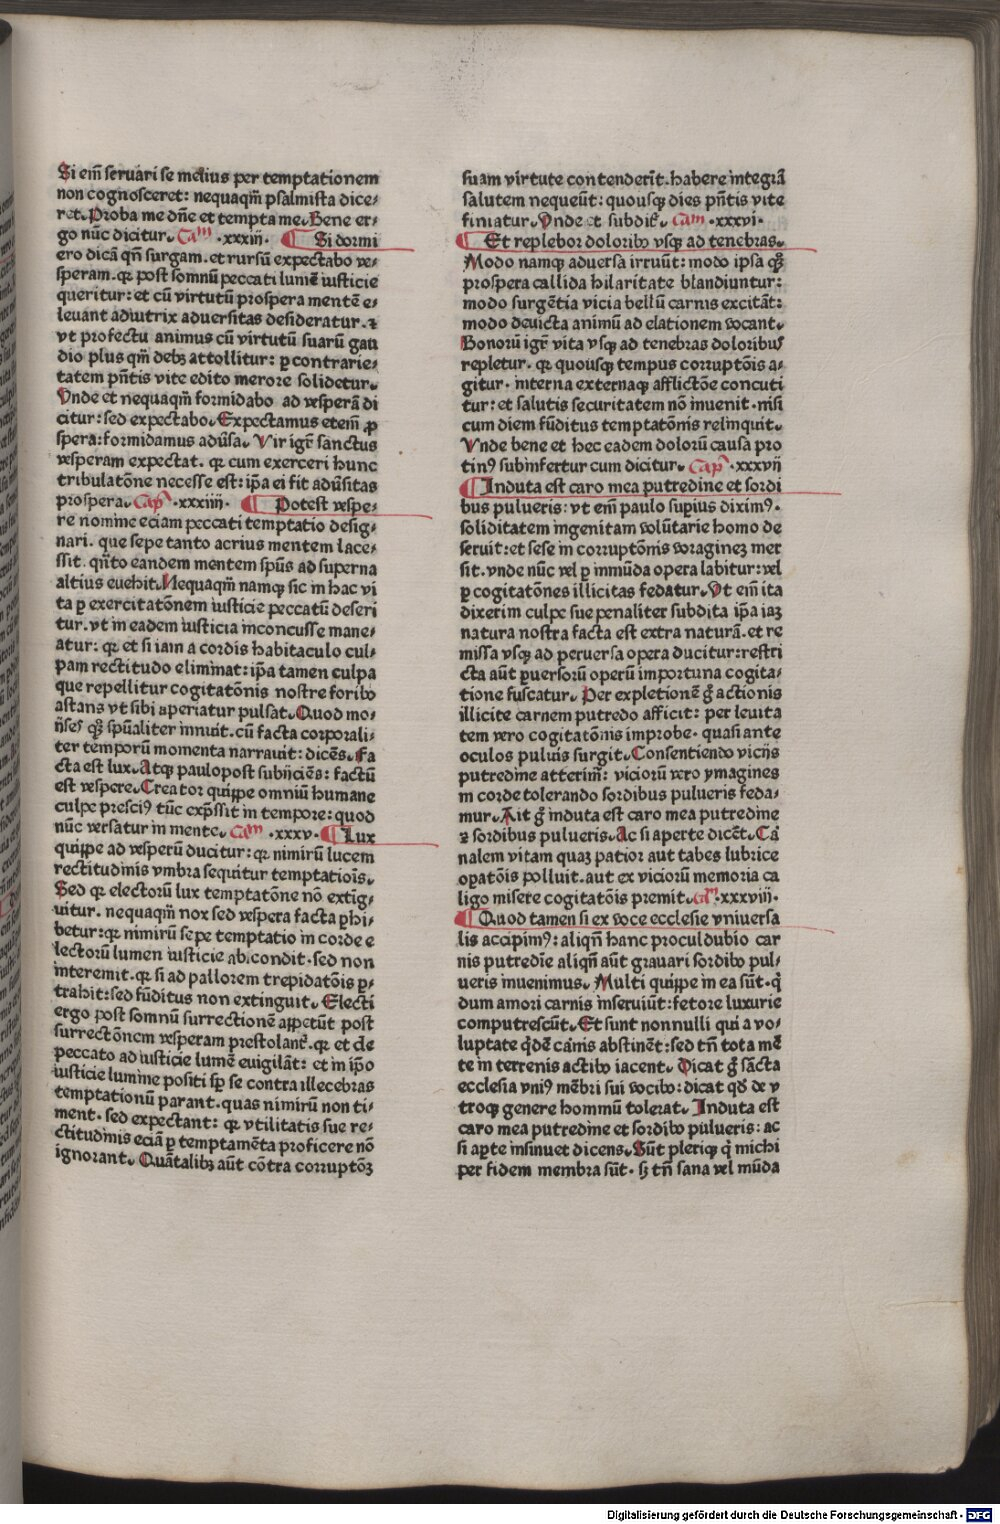 Si em̄ seruari se melius per temptationem
non cognosceret: nequaqm̄ psalmista dice⸗
ret. Proba me dn̄e et tempta me. Bene er⸗
go nūc dicitur. Cam .xxxiij. ¶ Si dormi
ero dicā qn̄ surgam. et rursū expectabo ve⸗
speram. qꝛ post somnū peccati lumē iusticie
queritur: et cū virtutū prospera mentē e⸗
leuant adiutrix aduersitas desideratur. ⁊
vt profectu animus cū virtutū suarū gau
dio plus qm̄ debꝫ attollitur: ꝑ contrarie⸗
tatem pn̄tis vite edito merore solidetur.
Vnde et nequaqm̄ formidabo ad vesperā di
citur: sed expectabo. Expectamus etem̄ ꝓ
spera: formidamus adūsa. Vir igr̄ sanctus
vesperam expectat. qꝛ cum exerceri hunc
tribulatōne necesse est: ip̄a ei fit adūsitas
prospera. Cap .xxxiiij. ¶ Potest vespe⸗
re nomine eciam peccati temptatio desig⸗
nari. que sepe tanto acrius mentem lace⸗
ssit. qn̄to eandem mentem spūs ad superna
altius euehit. Nequaqm̄ namqꝫ sic in hac vi
ta ꝑ exercitatōnem iusticie peccatū deseri
tur. vt in eadem iusticia inconcusse mane⸗
atur: qꝛ et si iam a cordis habitaculo cul⸗
pam rectitudo eliminat: ip̄a tamen culpa
que repellitur cogitatōnis nostre foribꝰ
astans vt sibi aperiatur pulsat. Quod mo⸗
yses qꝫ spūaliter innuit. cū facta corporali⸗
ter temporū momenta narrauit: dicēs. Fa
cta est lux. Atqꝫ paulopost subijciēs: factū
est vespere. Creator quippe omniū humane
culpe presciꝰ tūc exp̄ssit in tempore: quod
nūc versatur in mente. Cam .xxxv. ¶ Lux
quippe ad vesperū ducitur: qꝛ nimirū lucem
rectitudinis vmbra sequitur temptatiois̄.
Sed qꝛ electorū lux temptatōne nō extiḡ⸗
uitur. nequaqm̄ nox sed vespera facta ꝑhi⸗
betur: qꝛ nimirū sepe temptatio in corde e
lectorū lumen iusticie abscondit. sed non
interemit. qꝛ si ad pallorem trepidatōis ꝑ⸗
trahit: sed fūditus non extinguit. Electi
ergo post somnū surrectionē appetūt post
surrectōnem vesperam prestolant̄. qꝛ et de
peccato ad iusticie lumē euigilāt: et in ip̄o
iusticie lumine positi sp̄ se contra illecebras
temptationū parant. quas nimirū non ti⸗
ment. sed expectant: qꝛ vtilitatis sue re⸗
ctitudinis eciā ꝑ temptamēta proficere nō
ignorant. Quātalibꝫ aūt cōtra corruptōꝫ
suam virtute contenderīt. habere integrā
salutem nequeūt: quousqꝫ dies pn̄tis vite
finiatur. Vnde et subdit̄. Cam .xxxvi.
¶ Et replebor doloribꝰ vsqꝫ ad tenebras.
Modo namqꝫ aduersa irruūt: modo ipsa qꝫ
prospera callida hilaritate blandiuntur:
modo surgētia vicia bellū carnis excitāt:
modo deuicta animū ad elationem vocant.
Bonorū igr̄ vita vsqꝫ ad tenebras doloribus
repletur. qꝛ quousqꝫ tempus corruptōis a⸗
gitur. interna externaqꝫ afflictōe concuti
tur: et salutis securitatem nō inuenit. nisi
cum diem fūditus temptatōnis relinquit.
Vnde bene et hec eadem dolorū causa pro
tinꝰ subinfertur cum dicitur. Cap .xxxvij
¶ Induta est caro mea putredine et sordi
bus pulueris: vt em̄ paulo supius diximꝰ.
soliditatem ingenitam volūtarie homo de
seruit: et sese in corruptōnis voraginez mer
sit. vnde nūc vel ꝑ inmūda opera labitur: vel
ꝑ cogitatōnes illicitas fedatur. Vt em̄ ita
dixerim culpe sue penaliter subdita ip̄a iaꝫ
natura nostra facta est extra naturā. et re
missa vsqꝫ ad peruersa opera ducitur: restri
cta aūt ꝑuersorū operū importuna cogita⸗
tione fuscatur. Per expletionē g̊ actionis
illicite carnem putredo afficit: per leuita
tem vero cogitatōnis improbe. quasi ante
oculos puluis surgit. Consentiendo vicijs
putredine atterim̄: viciorū vero ymagines
in corde tolerando sordibus pulueris feda⸗
mur. Ait g̊ induta est caro mea putredine
⁊ sordibus pulueris. Ac si aperte dicēt. Ca
nalem vitam quaꝫ patior aut tabes lubrice
opatōis polluit. aut ex viciorū memoria ca
ligo misere cogitatōis premit. Cam .xxxviij.
¶ Quod tamen si ex voce ecclesie vniuersa
lis accipimꝰ: aliqn̄ hanc proculdubio car
nis putredīe aliqn̄ aūt grauari sordibꝰ pul⸗
ueris inuenimus. Multi quippe in ea sūt. q̇
dum amori carnis inseruiūt: fetore luxurie
computrescūt. Et sunt nonnulli qui a vo⸗
luptate q̇dē carnis abstinēt: sed tn̄ tota mē
te in terrenis actibꝰ iacent. Dicat g̊ sācta
ecclesia vniꝰ mēbri sui vocibꝰ: dicat qd̄ de v
troqꝫ genere hominū tolerat. Induta est
caro mea putredine et sordibꝰ pulueris: ac
si aꝑte insinuet dicens. Sūt pleriqꝫ q̇ michi
per fidem membra sūt. sꝫ tn̄ sana vel mūda
Digitalisierung gefördert durch die Deutsche Forschungsgemeinschaft - DFG